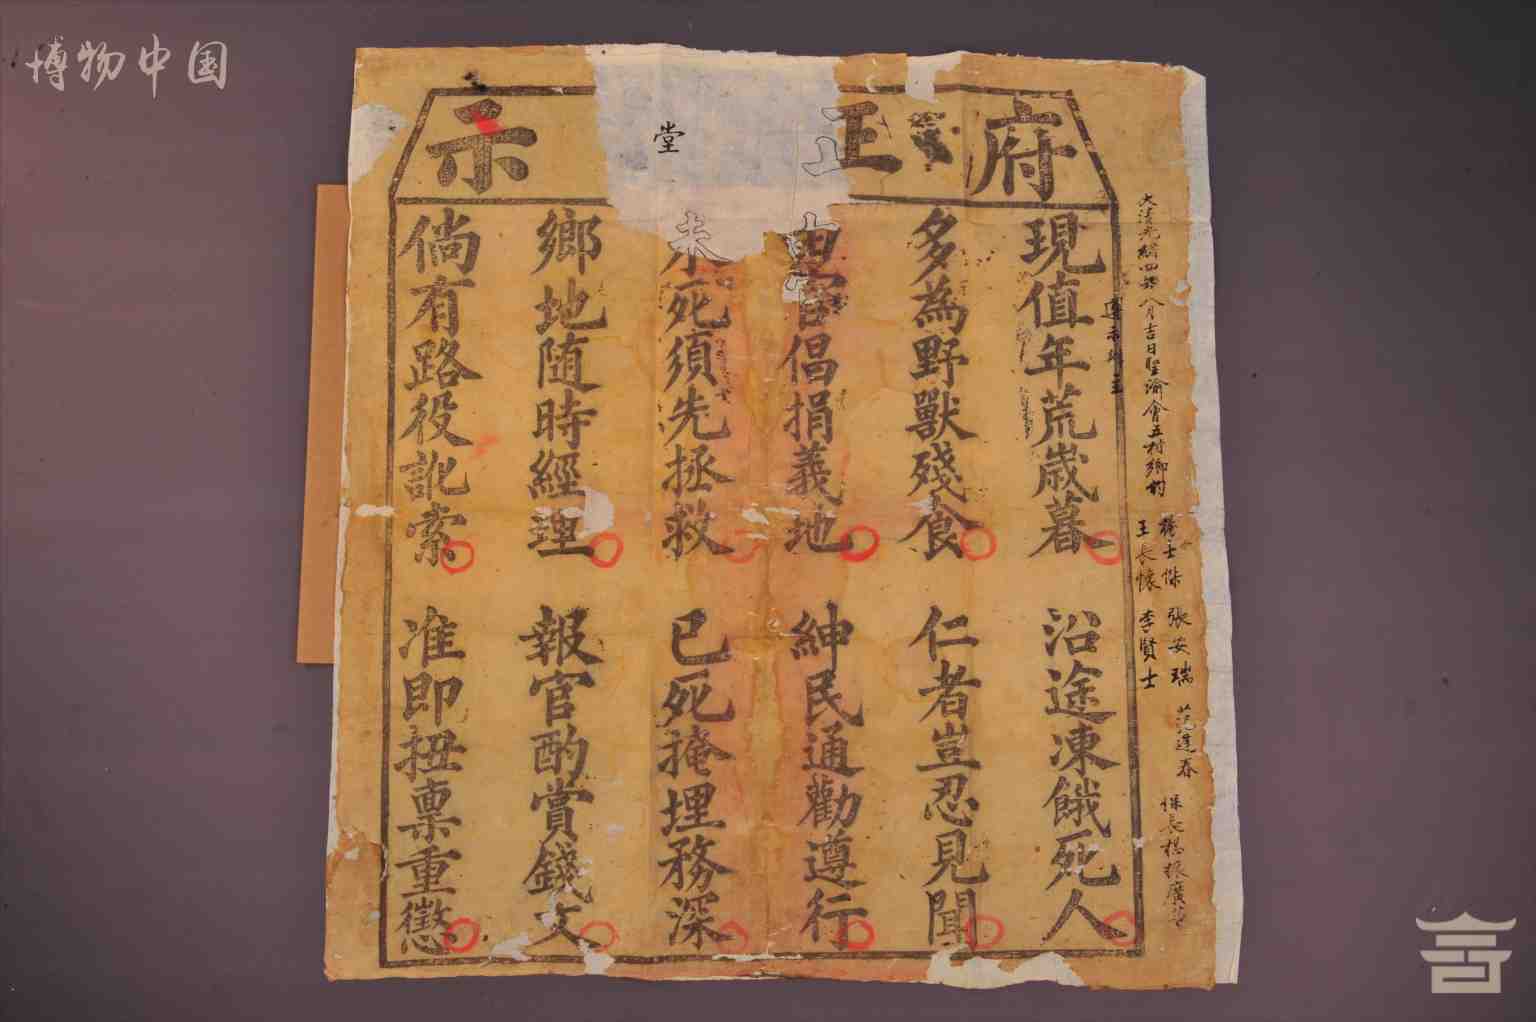 博物中国
府正堂示
現值年荒歲暮
沿途凍餓死人
多為野獸殘食
仁者豈忍見聞
由官倡捐義地
紳民通勸遵行
未死須先拯救
已死掩埋務深
鄉地随時經理
報官酌賞錢文
倘有路役訛索
准即扭稟重懲
大清光緒四年八月吉日聖諭會五村鄉
士傑 張安瑞 范建春 保長楊振廣
王長懷 李賢士